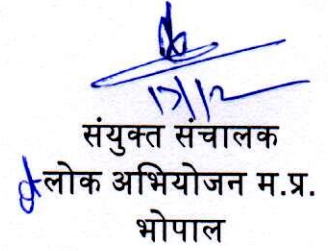 संयुक्त संचालक
लोक अभियोजन म.प्र.
भोपाल